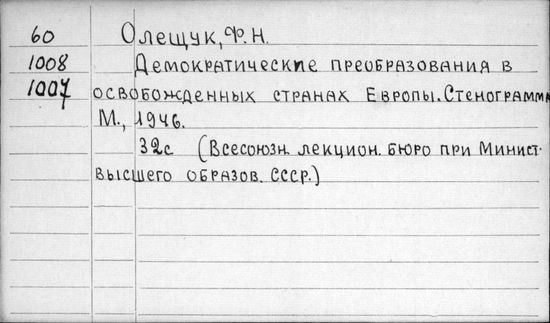 60 Олещук, Ф.Н.
1008 Демократические преобразования в
1007 освобожденных странах Европы. Стенограмма
М., 1946.
32с (Всесоюзн. лекцион. бюро при Минист.
высшего образов. СССР.)